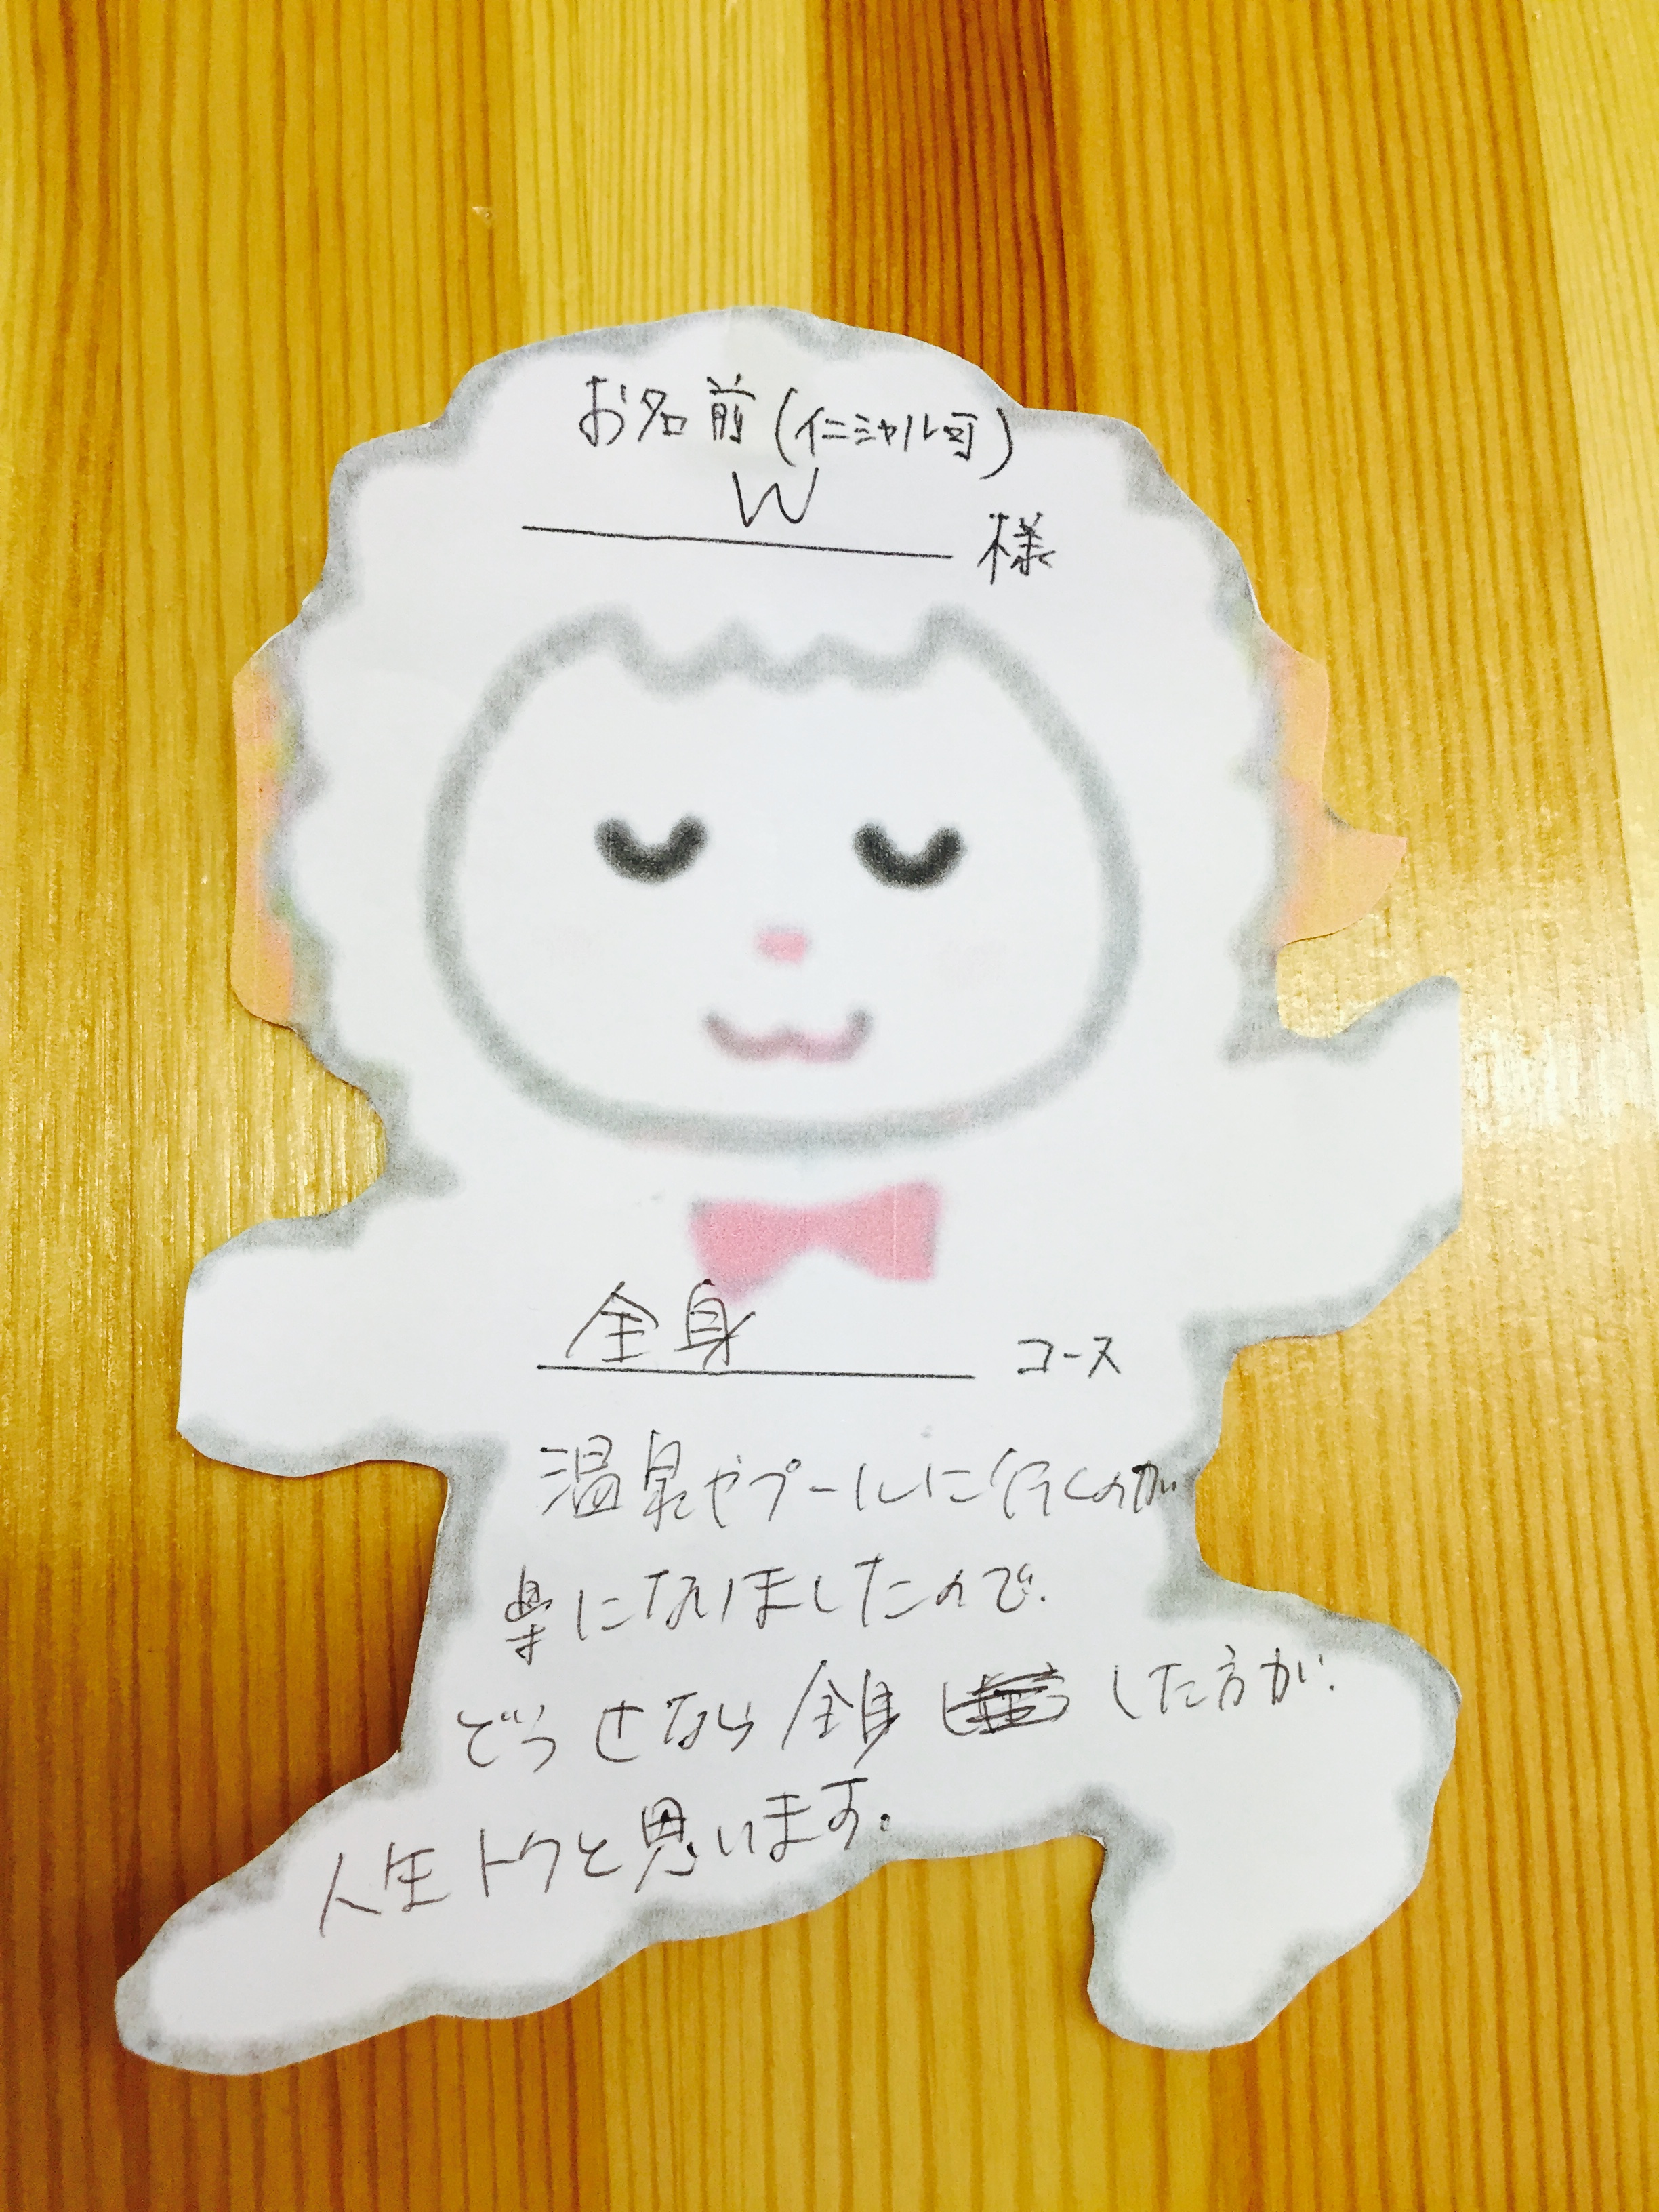 お名前(イニシャル可)
W 様
全身 コース
温泉やプールに行くのが
楽になりましたので、
どうせなら全身 した方が、
人生トクと思います。